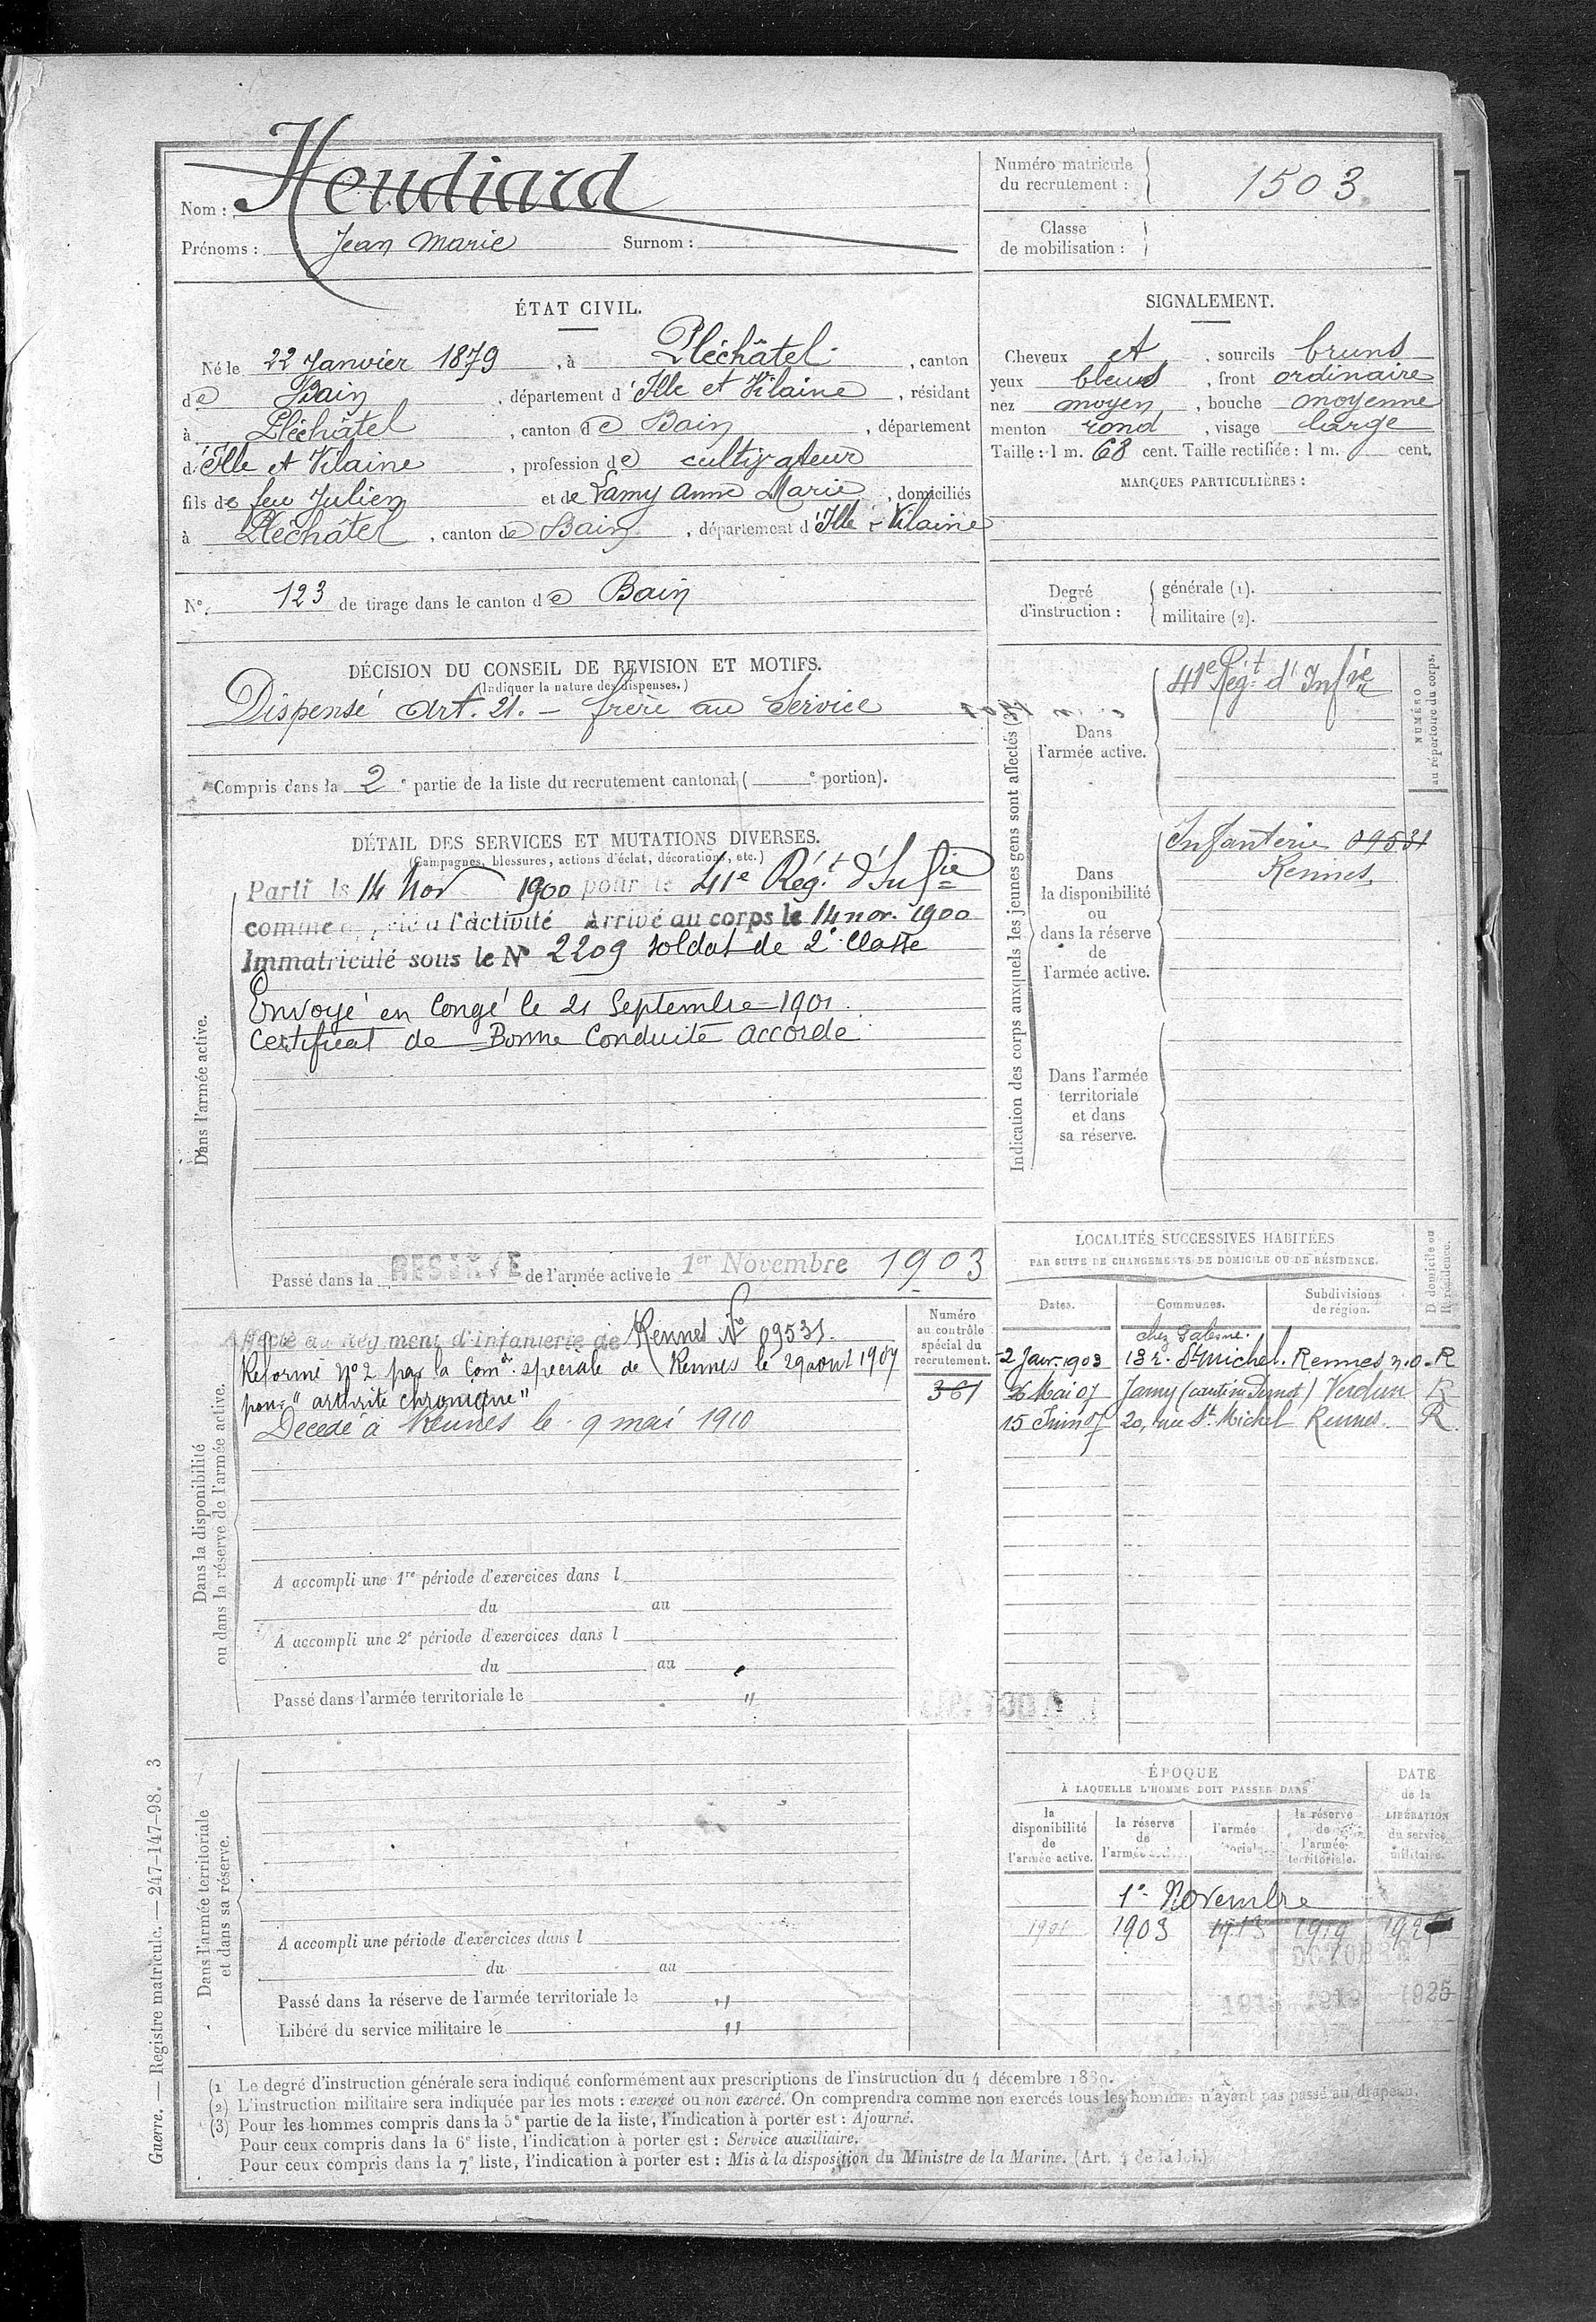 Nom : Heudiard
Prénoms : Jean Marie Surnom :
Numéro matricule
du recrutement : 1503
Classe
de mobilisation :
ÉTAT CIVIL.
Né le 22 Janvier 1879, à Pléchâtel, canton
de Bain, département d'Ille et Vilaine, résidant
à Pléchâtel, canton de Bain, département
d'Ille et Vilaine, profession de cultivateur
fils de feu Julien et de Lamy Anne Marie, domiciliés
à Pléchâtel, canton de Bain, département d'Ille & Vilaine
N°. 123 de tirage dans le canton de Bain
SIGNALEMENT.
Cheveux et, sourcils bruns
yeux bleus, front ordinaire
nez moyen, bouche moyenne
menton rond, visage large
Taille : 1 m. 68 cent. Taille rectifiée : 1 m. cent.
MARQUES PARTICULIÈRES :
Degré
d'instruction :
générale (1).
militaire (2).
DÉCISION DU CONSEIL DE REVISION ET MOTIFS.
(Indiquer la nature des dispenses.)
Dispensé Art. 21. – frère au Service
Compris dans la 2e partie de la liste du recrutement cantonal ( e portion).
DÉTAIL DES SERVICES ET MUTATIONS DIVERSES.
(Campagnes, blessures, actions d'éclat, décorations, etc.)
Dans l'armée active.
Parti le 14 Nov 1900 pour le 41e Régt d'Infie
comme appelé à l'activité Arrivé au corps le 14 nov. 1900
Immatriculé sous le N° 2209 soldat de 2e Classe
Envoyé en Congé le 21 Septembre 1901.
Certificat de Bonne Conduite accordé
Passé dans la RESERVE de l'armée active le 1er Novembre 1903
Indication des corps auxquels les jeunes gens sont affectés (3)
NUMÉRO
au répertoire du corps.
Dans
l'armée active.
41e Régt d'Infrie
Dans
la disponibilité
ou
dans la réserve
de
l'armée active.
Infanterie 09531
Rennes
Dans l'armée
territoriale
et dans
sa réserve.
Dans la disponibilité
ou dans la réserve de l'armée active.
Affecté au Régiment d'Infanterie de Rennes N° 09531.
Réformé n° 2 par la Comon spéciale de Rennes le 29 aout 1907
pour "arthrite chronique"
Décédé à Rennes le 9 mai 1910
Numéro
au contrôle
spécial du
recrutement.
361
A accompli une 1re période d'exercices dans l
du au
A accompli une 2e période d'exercices dans l
du au
Passé dans l'armée territoriale le "
LOCALITÉS SUCCESSIVES HABITÉES
PAR SUITE DE CHANGEMENTS DE DOMICILE OU DE RÉSIDENCE.
Dates. Communes. Subdivisions
de région.
D. domicile ou
R. résidence.
2 Janv. 1903 13 r. St Michel. Rennes R
26 Mai 07 Verdun R
15 Juin 07 20, rue St Michel Rennes. R
Dans l'armée territoriale
et dans sa réserve.
A accompli une période d'exercices dans l
du au
Passé dans la réserve de l'armée territoriale le "
Libéré du service militaire le "
ÉPOQUE
À LAQUELLE L'HOMME DOIT PASSER DANS
DATE
de la
LIBÉRATION
du service
militaire.
la
disponibilité
de
l'armée active.
la réserve
de
l'armée active.
l'armée
territoriale.
la réserve
de
l'armée
territoriale.
1er Novembre
1901 1903 1913 1919
OCTOBRE
1913 1919 1925
(1) Le degré d'instruction générale sera indiqué conformément aux prescriptions de l'instruction du 4 décembre 1889.
(2) L'instruction militaire sera indiquée par les mots : exercé ou non exercé. On comprendra comme non exercés tous les hommes n'ayant pas passé au drapeau.
(3) Pour les hommes compris dans la 5e partie de la liste, l'indication à porter est : Ajourné.
Pour ceux compris dans la 6e liste, l'indication à porter est : Service auxiliaire.
Pour ceux compris dans la 7e liste, l'indication à porter est : Mis à la disposition du Ministre de la Marine. (Art. 4 de la loi.)
Guerre. — Registre matricule. — 247-147-98. 3